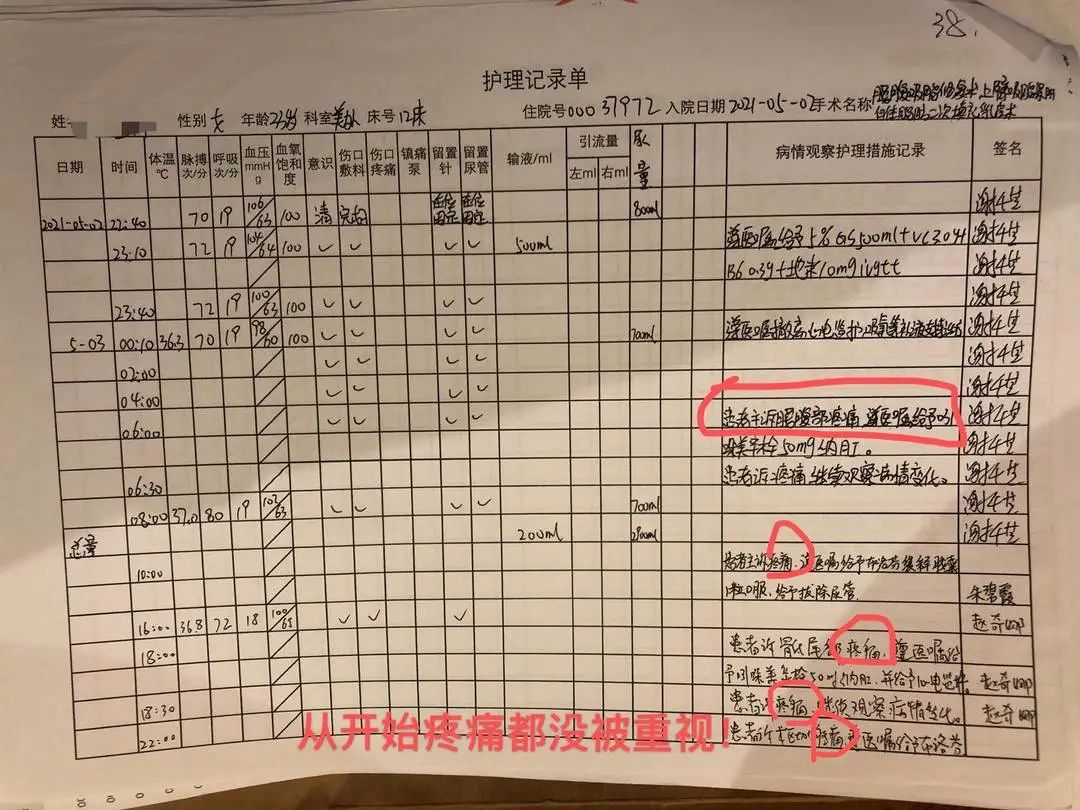 38.
护理记录单
姓 性别 女 年龄 23岁 科室 美外 床号 12床 住院号 00037972 入院日期 2021-05-02 手术名称
日期 时间 体温℃ 脉搏次/分 呼吸次/分 血压mmHg 血氧饱和度 意识 伤口敷料 伤口疼痛 镇痛泵 留置针 留置尿管 输液/ml 引流量 左ml 右ml 尿量 病情观察护理措施记录 签名
2021-05-02 22:40 70 19 106/63 100 清 在位固定 在位固定 800ml
23:10 72 19 104/64 100 ✓ ✓ ✓ ✓ 500ml 遵医嘱给予5%GS500ml+VC3.0+
B6 0.3g+地米10mg ivgtt
23:40 72 19 100/63 100 ✓ ✓ ✓ ✓
5-03 00:10 36.3 70 19 98/60 100 ✓ ✓ ✓ ✓ 700ml 遵医嘱撤离心电监护
02:00 ✓ ✓ ✓ ✓
04:00 ✓ ✓ ✓ ✓
06:00 ✓ ✓ ✓ ✓ 患者主诉腰腹部疼痛,遵医嘱给予吲
哚美辛栓50mg纳肛。
06:30 患者诉疼痛继续观察病情变化。
08:00 37.0 80 19 102/63 ✓ ✓ ✓ ✓ 700ml
总量 200ml 2900ml
10:00 患者主诉疼痛,遵医嘱给予布洛芬缓释胶囊
1粒口服,给予拔除尿管. 朱碧霞
16:00 36.8 72 18 100/65 ✓ ✓ ✓
18:00 患者诉骶尾部疼痛,遵医嘱给
予吲哚美辛栓50mg纳肛,并给予
18:30 患者诉疼痛,继续观察病情变化。
22:00 患者诉 疼痛 遵医嘱给予布洛芬
从开始疼痛都没被重视!